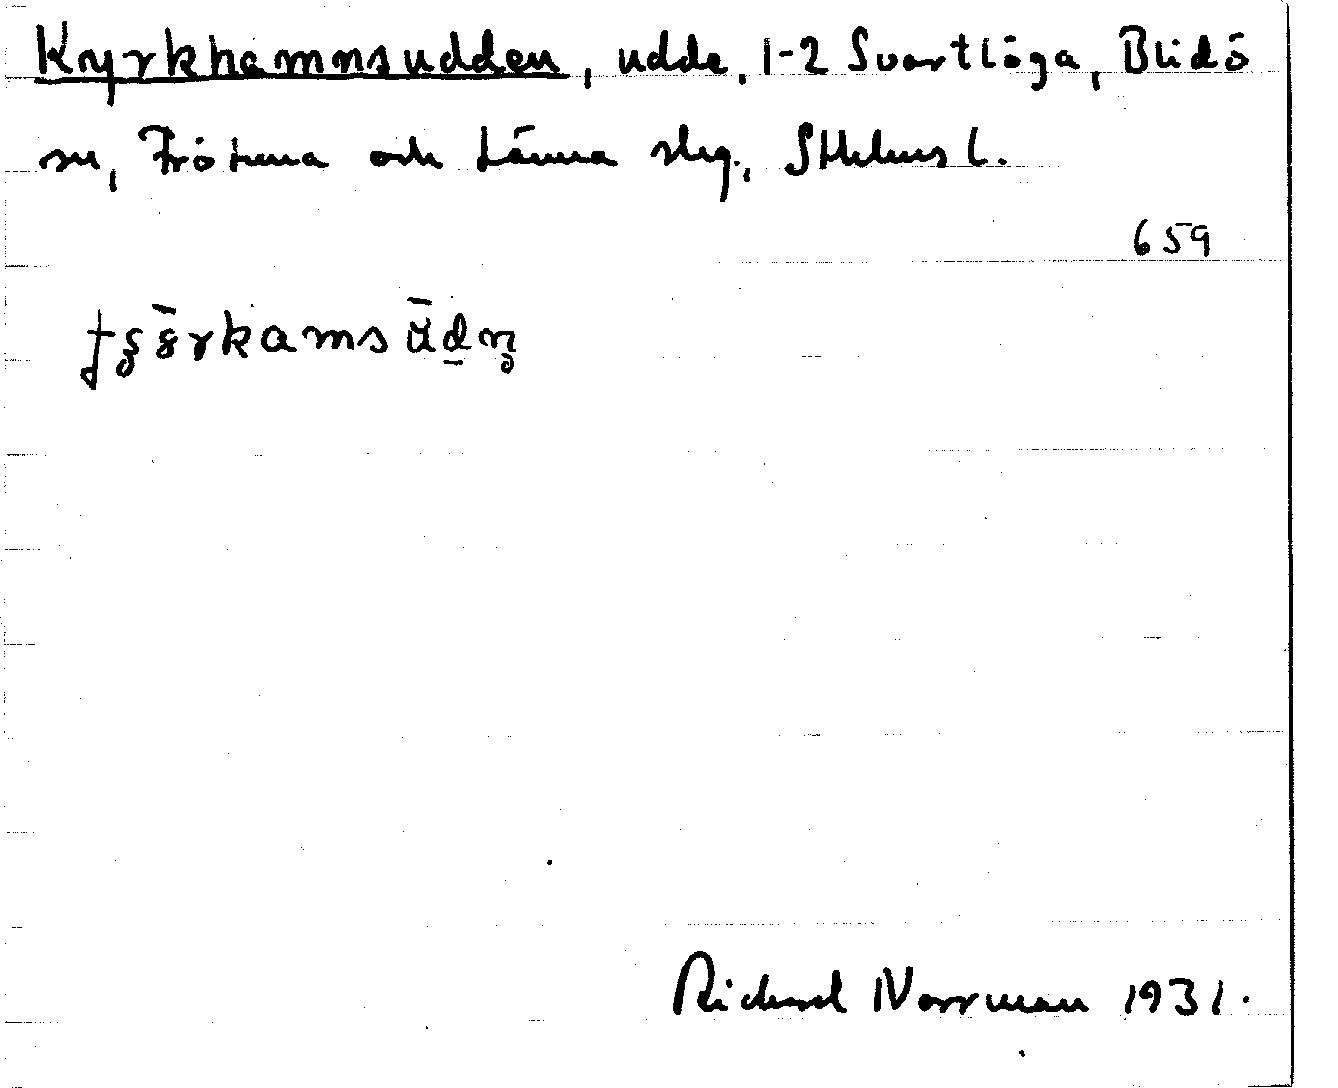 Kyrkhamnsudden, udde, 1-2 Svartlöga, Blidö
sn, Frötuna och Länna slg., Sthlms l.
659
Richard Norrman 1931.